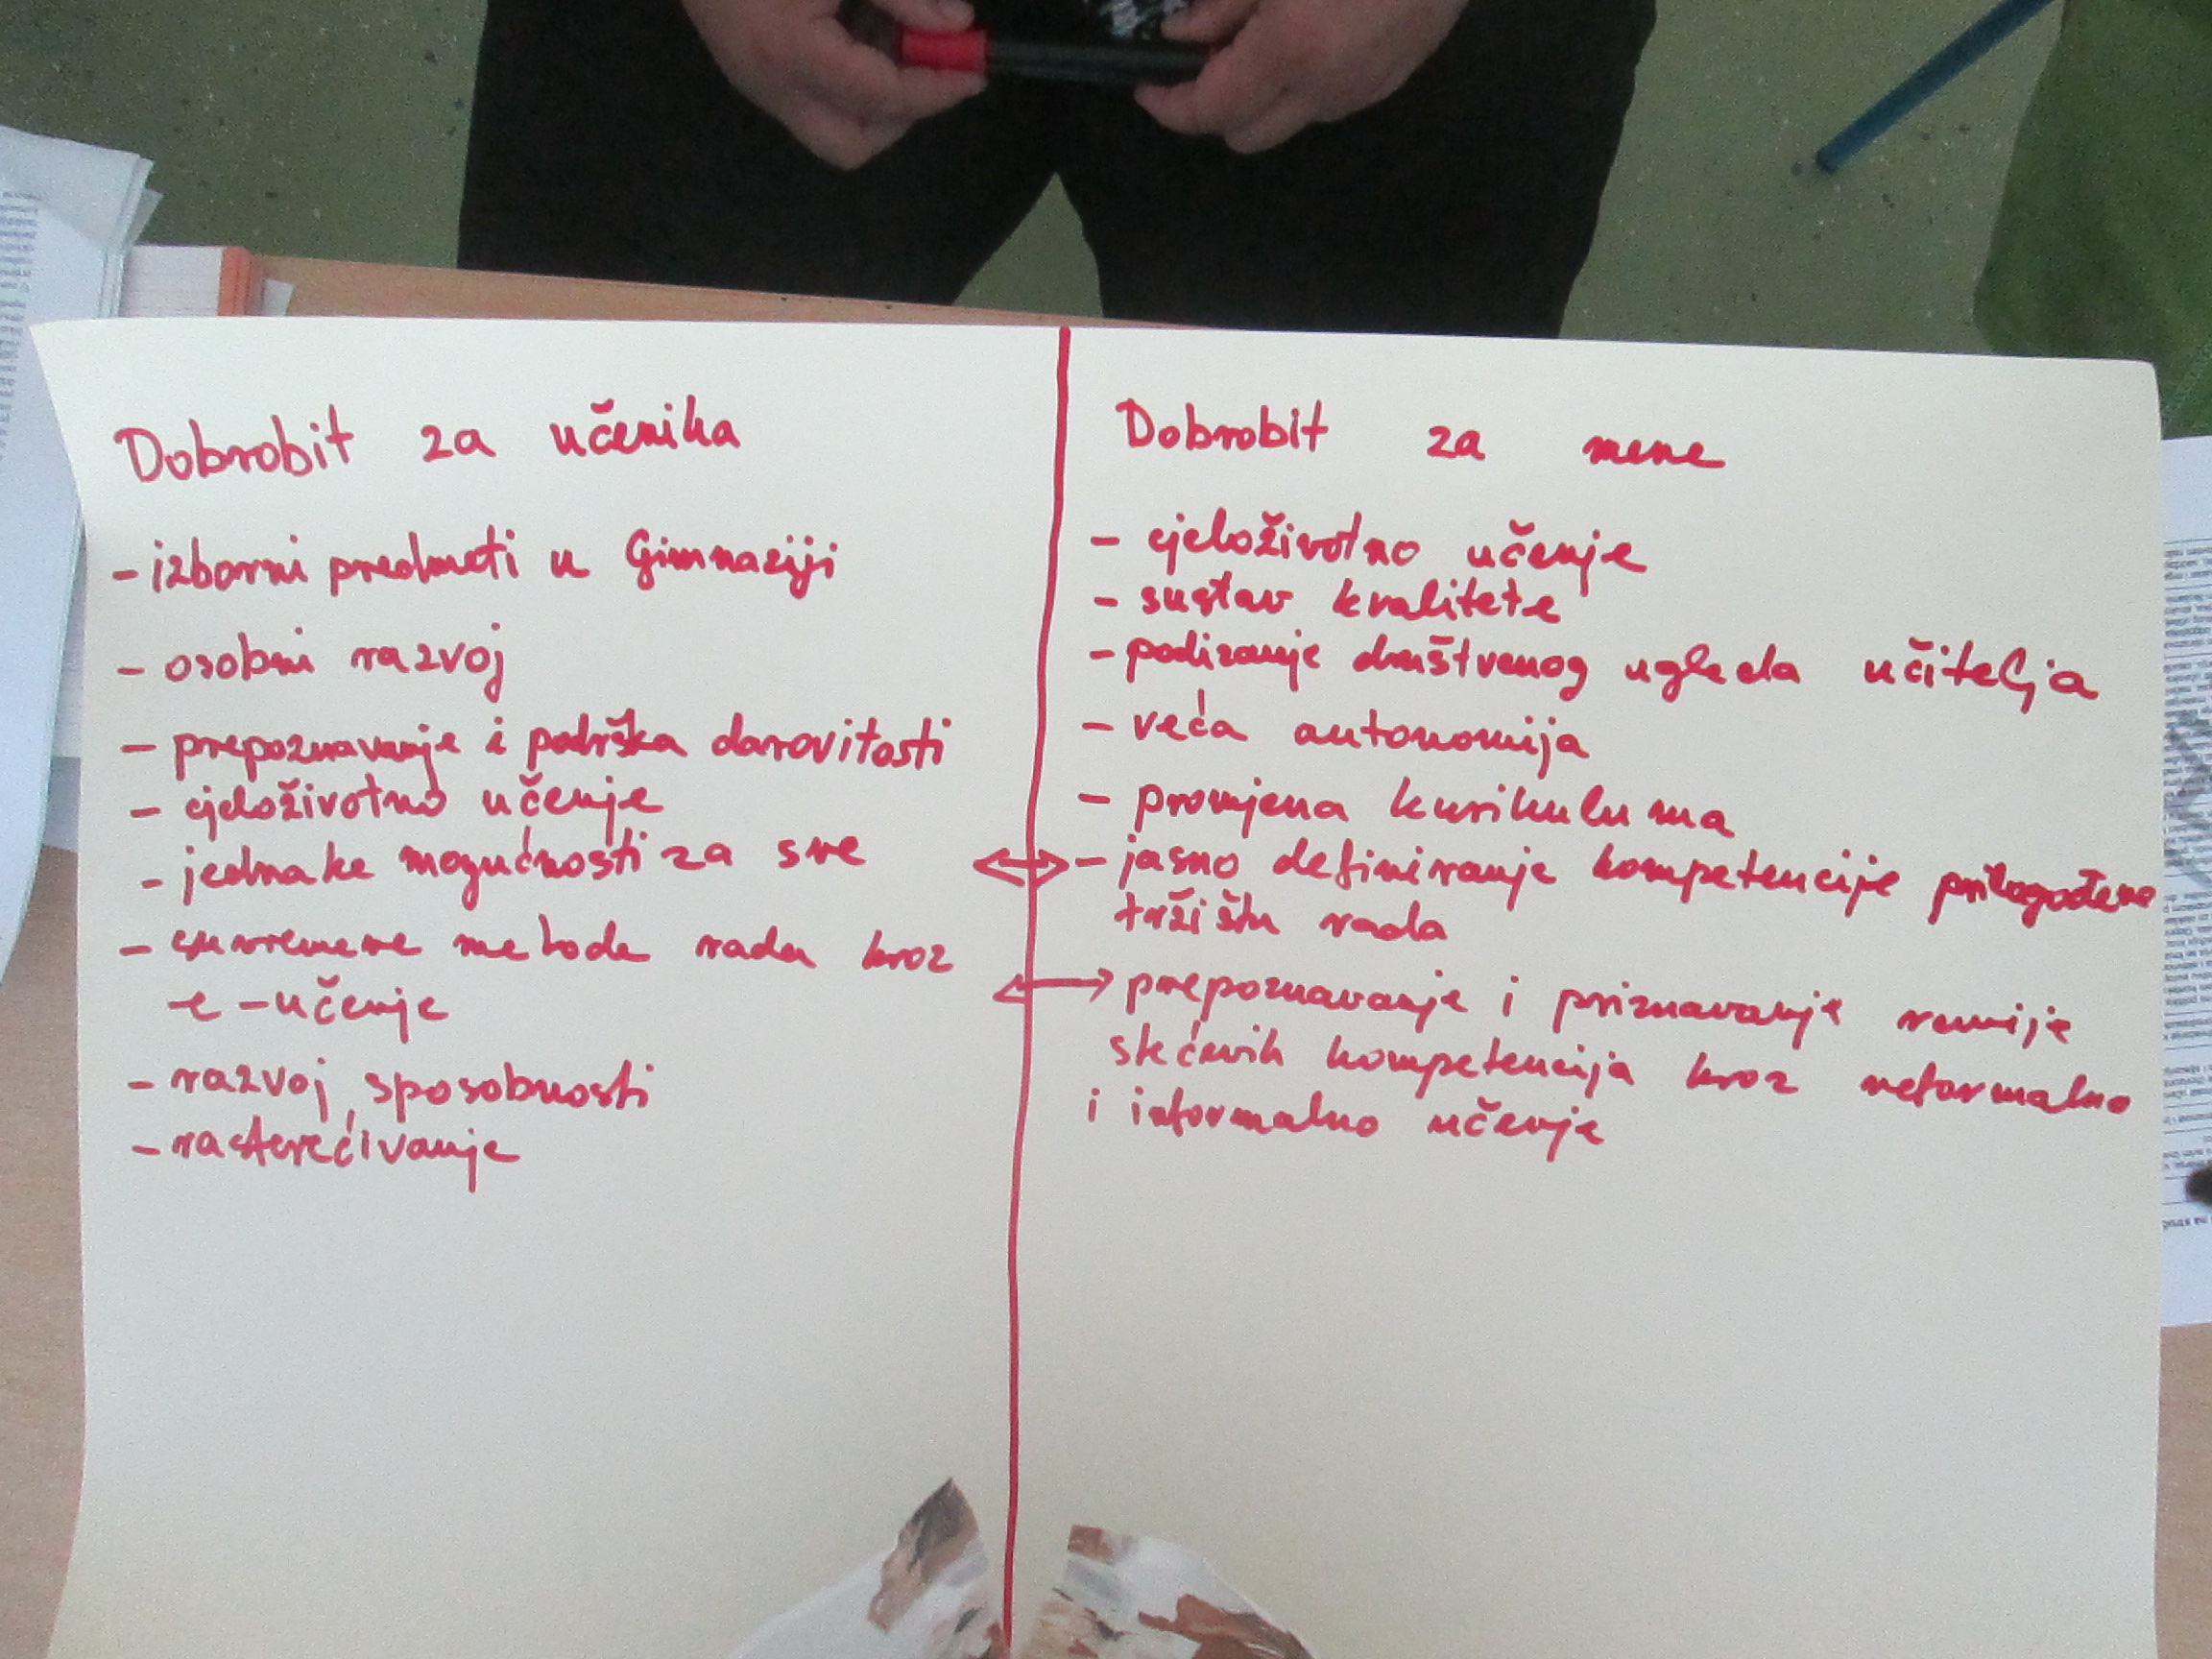 Dobrobit za učenika
- izborni predmeti u Gimnaziji
- osobni razvoj
- prepoznavanje i podrška darovitosti
- cjeloživotno učenje
- jednake mogućnosti za sve
- suvremene metode rada kroz
e-učenje
- razvoj sposobnosti
- rasterećivanje
Dobrobit za mene
- cjeloživotno učenje
- sustav kvalitete
- podizanje društvenog ugleda učitelja
- veća autonomija
- promjena kurikuluma
- jasno definiranje kompetencije prilagođene
tržištu rada
prepoznavanje i priznavanje ranije
stečenih kompetencija kroz neformalno
i informalno učenje